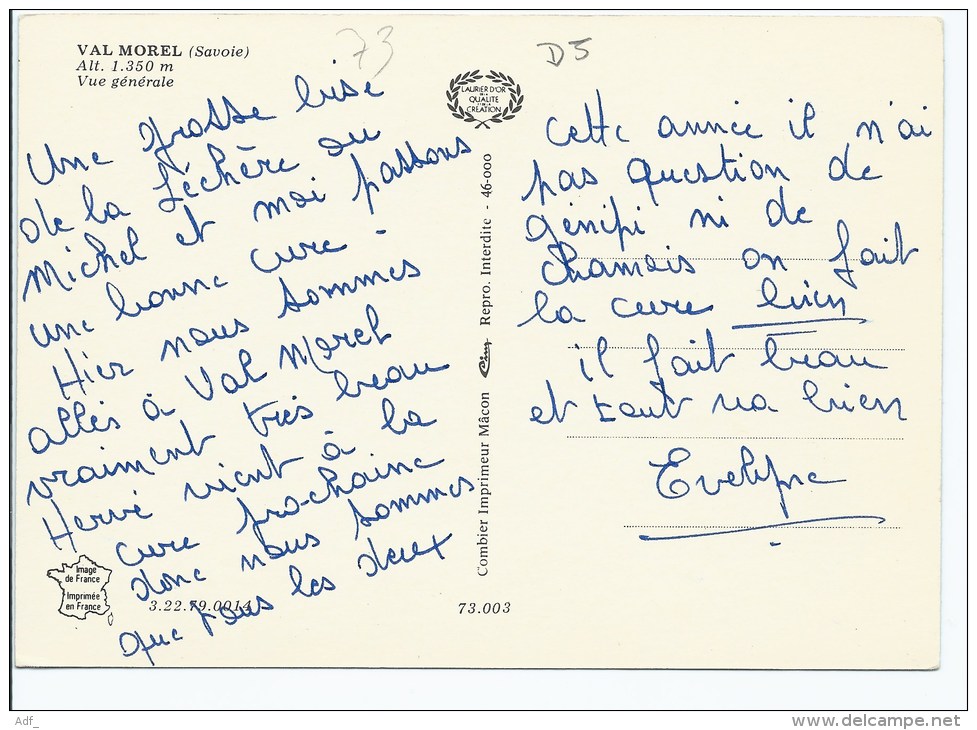 VAL MOREL (Savoie)
Alt. 1.350 m
Vue générale
73
D5
LAURIER D'OR
DE LA
QUALITÉ
DE LA
CRÉATION
Une grosse bise
de la Léchère ou
Michel et moi passons
une bonne cure -
Hier nous sommes
allés à Val Morel
vraiment très beau
Hervé vient à la
cure prochaine
donc nous sommes
que tous les deux
Image
de France
Imprimée
en France
3.22.79.0014
73.003
Combier Imprimeur Mâcon Cim Repro. Interdite - 46-000
Cette année il n'ai
pas question de
génépi ni de
chamois on fait
la cure bien
il fait beau
et tout va bien
Evelyne
Adf_
www.delcampe.net